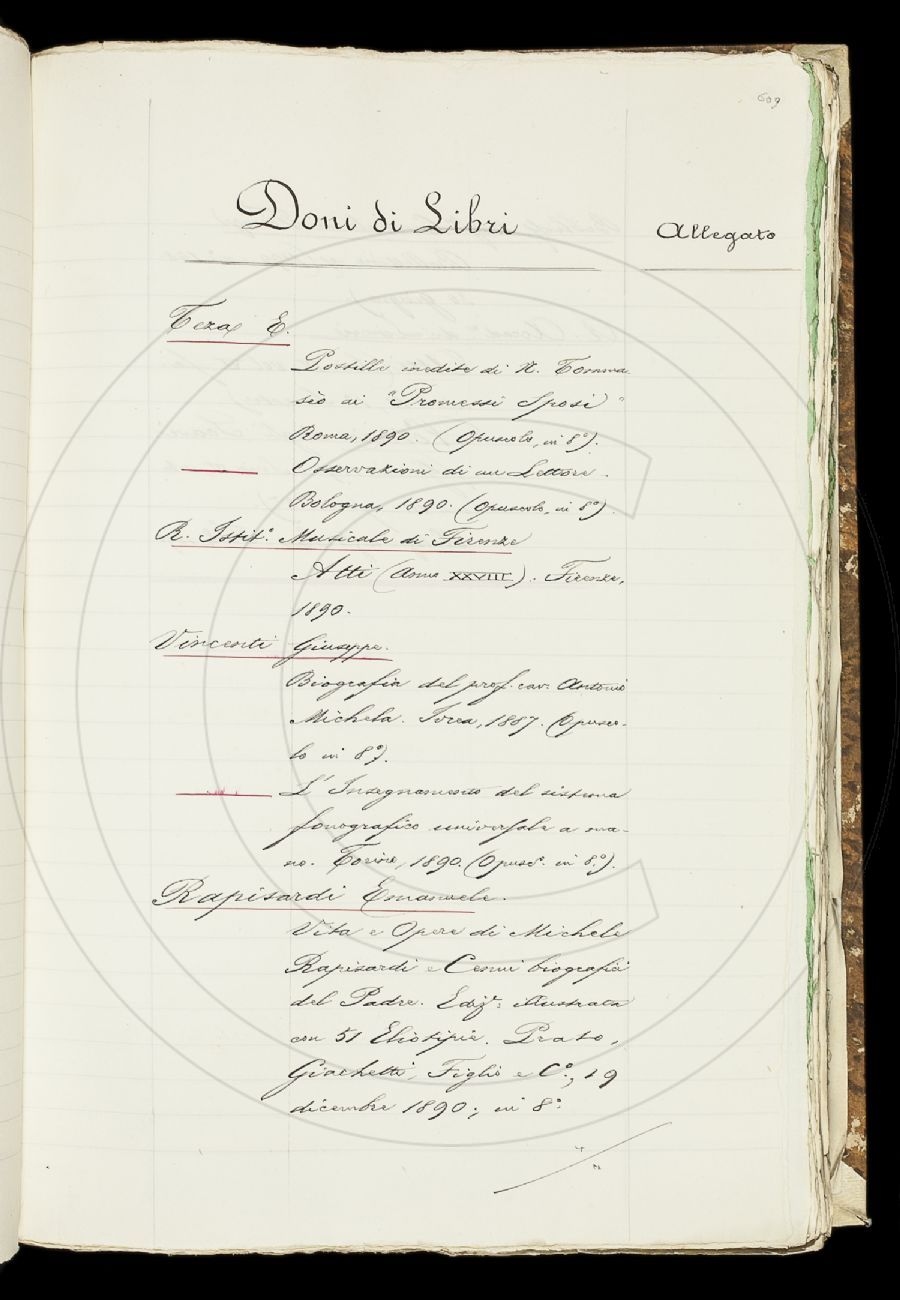 609
Doni di Libri
Allegato
Teza E.
Postille inedite di N. Tomma
sèo ai "Promessi Sposi"
Roma, 1890. (Opuscolo, in 8°).
Osservazioni di un Lettore.
Bologna, 1890. (Opuscolo, in 8°).
R. Istit.° Musicale di Firenze
Atti (Anno XXVIII). Firenze,
1890.
Vincenti Giuseppe.
Biografia del prof. cav. Antonio
Michela. Ivrea, 1887. (Opusco-
lo in 8°).
L'Insegnamento del sistema
fonografico universale a ma-
no. Torino, 1890. (Opusc.° in 8°).
Rapisardi Emanuele.
Vita e Opere di Michele
Rapisardi e Cenni biografici
del Padre. Ediz.e illustrata
con 51 Eliotipie. Prato,
Giachetti, Figlio e C.°, 19
dicembre 1890; in 8°.